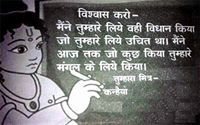 विश्वास करो –
मैंने तुम्हारे लिये वही विधान किया
जो तुम्हारे लिये उचित था। मैंने
आज तक जो कुछ किया तुम्हारे
मंगल के लिये किया।
तुम्हारा मित्र-
कन्हैया